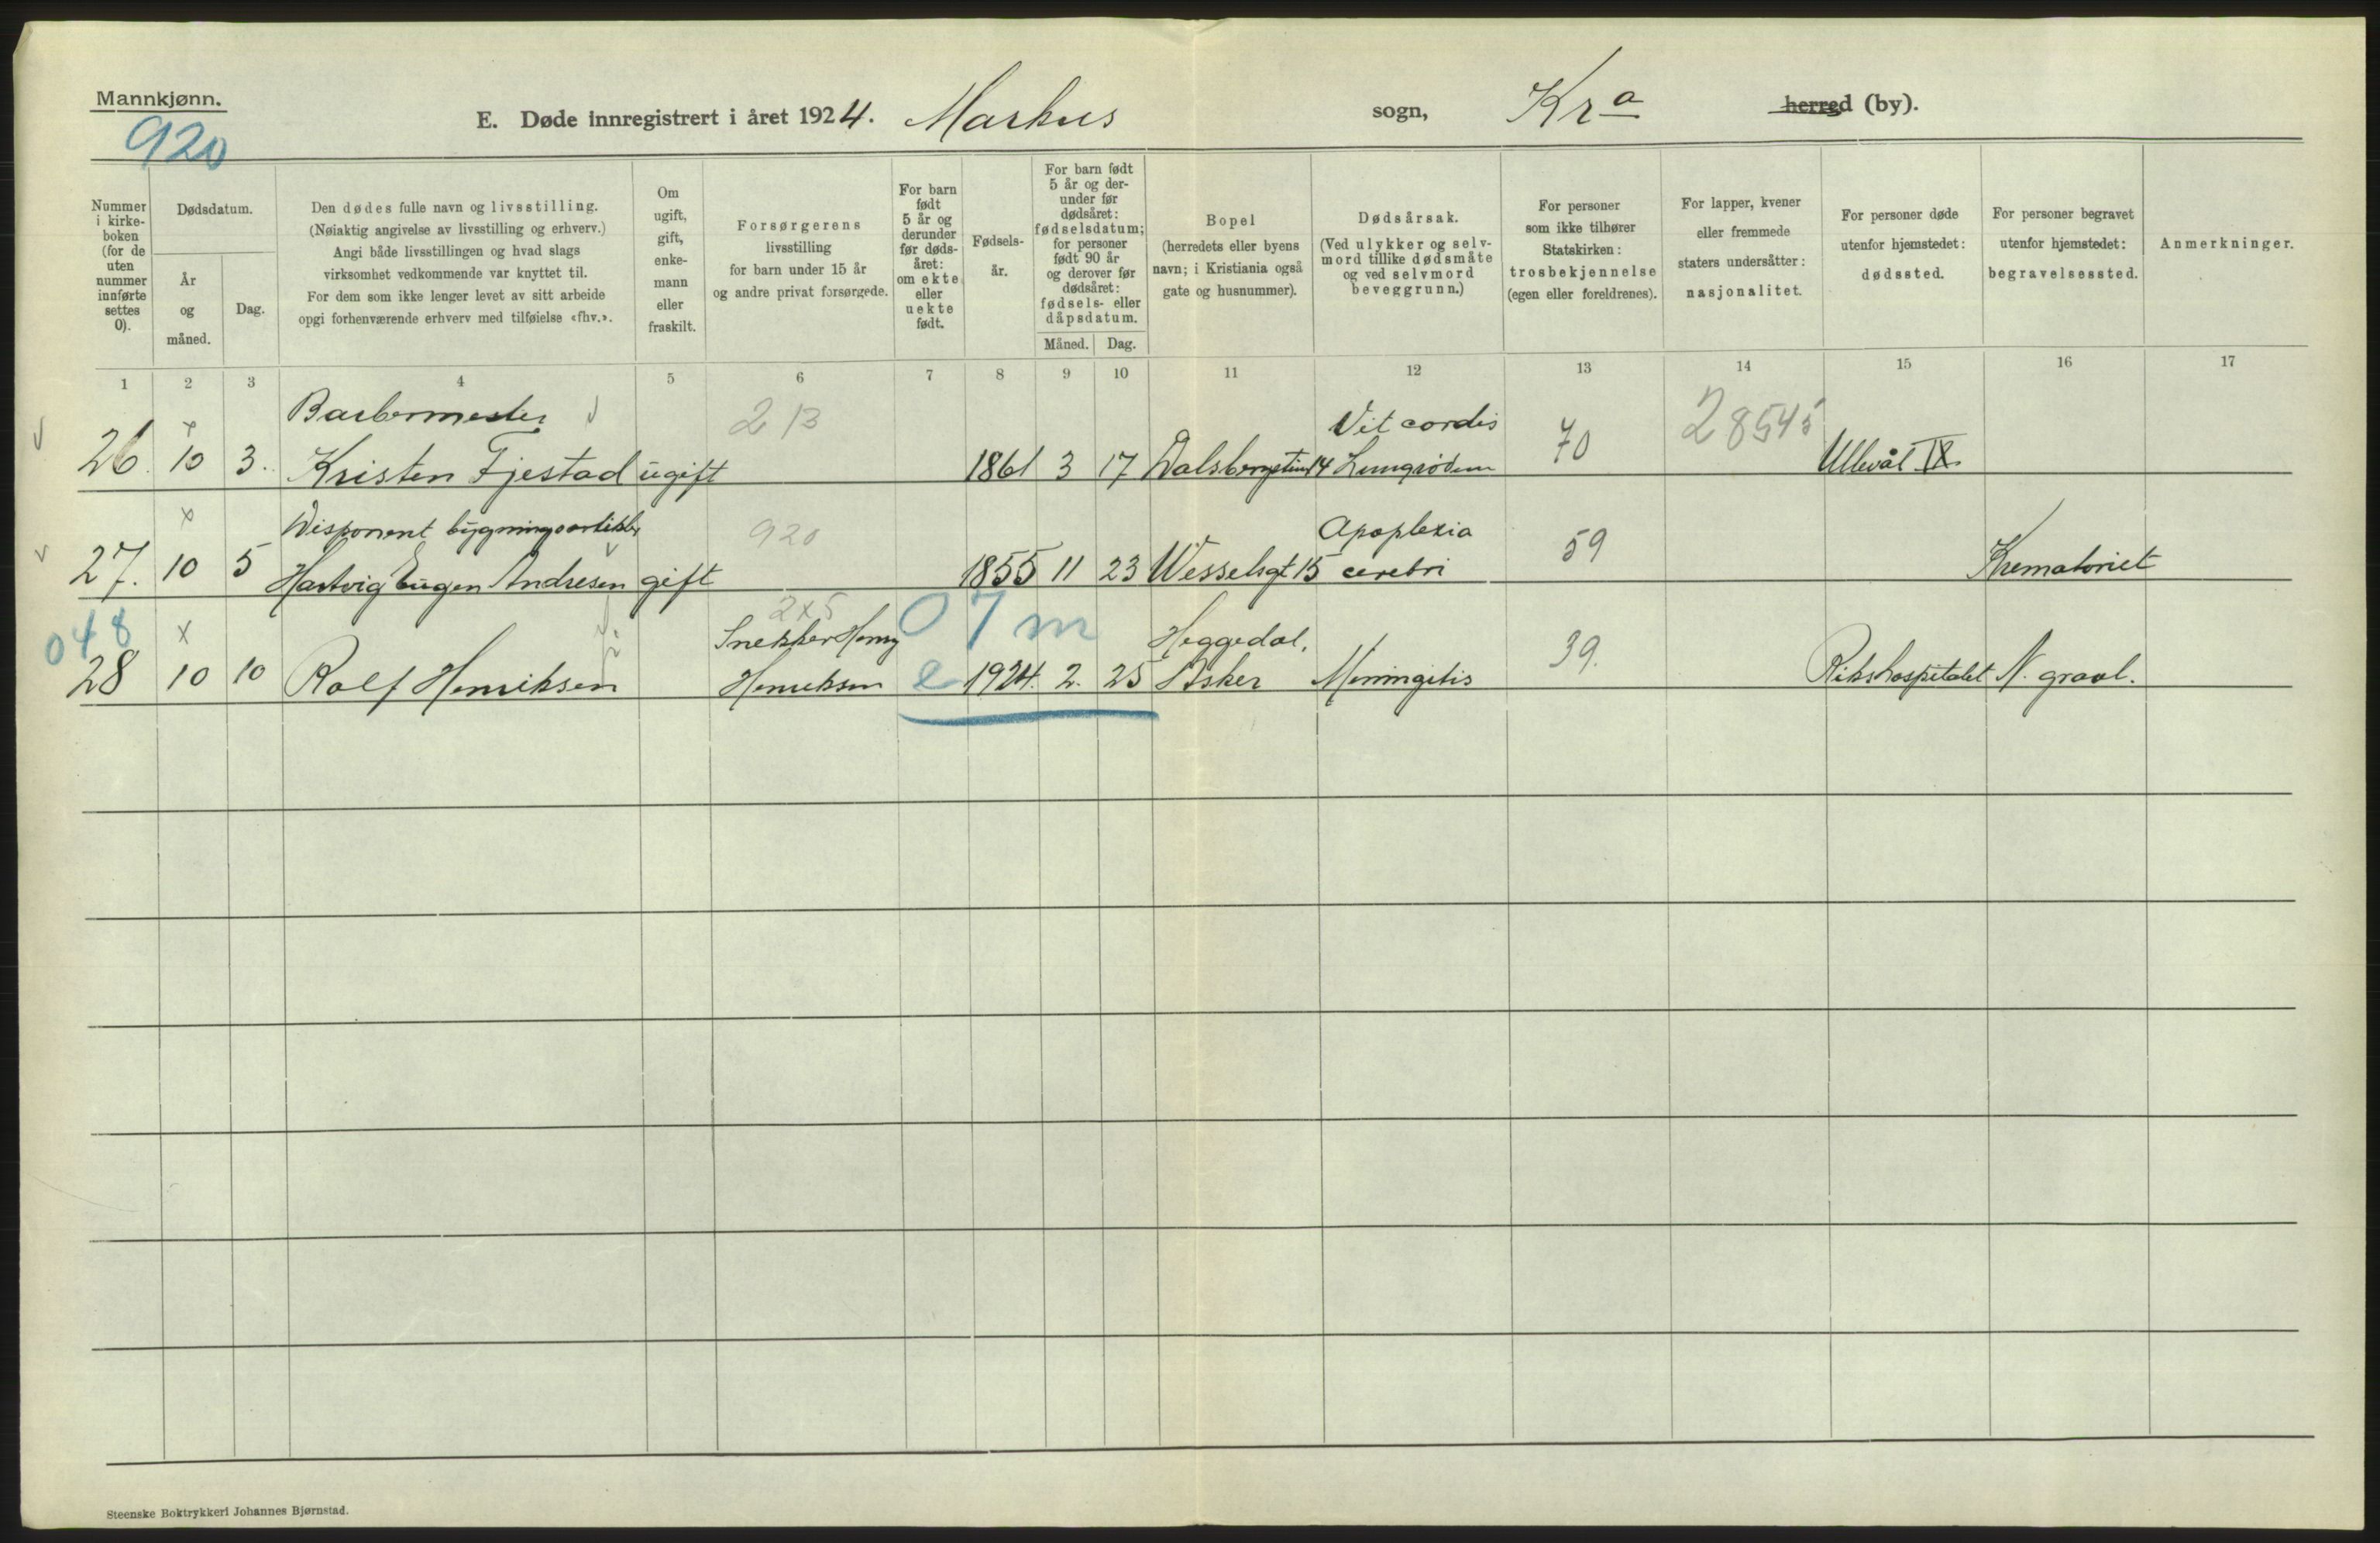 Mannkjønn.
920
E. Døde innregistrert i året 1924. Markus sogn, Kra herred (by).
Nummer i kirkeboken (for de uten nummer innførte settes 0).
Dødsdatum.
År og måned.
Dag.
Den dødes fulle navn og livsstilling.
(Nøiaktig angivelse av livsstilling og erhverv.)
Angi både livsstillingen og hvad slags
virksomhet vedkommende var knyttet til.
For dem som ikke lenger levet av sitt arbeide
opgi forhenværende erhverv med tilføielse «fhv.».
Om ugift, gift, enkemann eller fraskilt.
Forsørgerens
livsstilling
for barn under 15 år
og andre privat forsørgede.
For barn født 5 år og derunder før dødsåret: om ekte eller uekte født.
Fødselsår.
For barn født 5 år og derunder før dødsåret: fødselsdatum; for personer født 90 år og derover før dødsåret: fødsels- eller dåpsdatum.
Måned. Dag.
Bopel
(herredets eller byens
navn; i Kristiania også
gate og husnummer).
Dødsårsak.
(Ved ulykker og selvmord tillike dødsmåte
og ved selvmord
beveggrunn.)
For personer
som ikke tilhører
Statskirken:
trosbekjennelse
(egen eller foreldrenes).
For lapper, kvener
eller fremmede
staters undersåtter:
nasjonalitet.
For personer døde
utenfor hjemstedet:
dødssted.
For personer begravet
utenfor hjemstedet:
begravelsessted.
Anmerkninger.
1 2 3 4 5 6 7 8 9 10 11 12 13 14 15 16 17
Barbermester 213 Vit cordis 28545
26. 10 3. Kristen Fjestad ugift 1861 3 17 14 70 Ullevål IX.
Disponent bygningsartikler 920 Apoplexia
27. 10 5 Hartvig Eugen Andresen gift 1855 11 23 Wesselsgt 15 cerebri 59 Krematoriet
048 2x5 07m
Snekker Henry Heggedal,
28 10 10 Rolf Henriksen Henriksen e 1924. 2. 25 Asker Meningitis 39. Rikshospitalet N. gravl.
Steenske Boktrykkeri Johannes Bjørnstad.